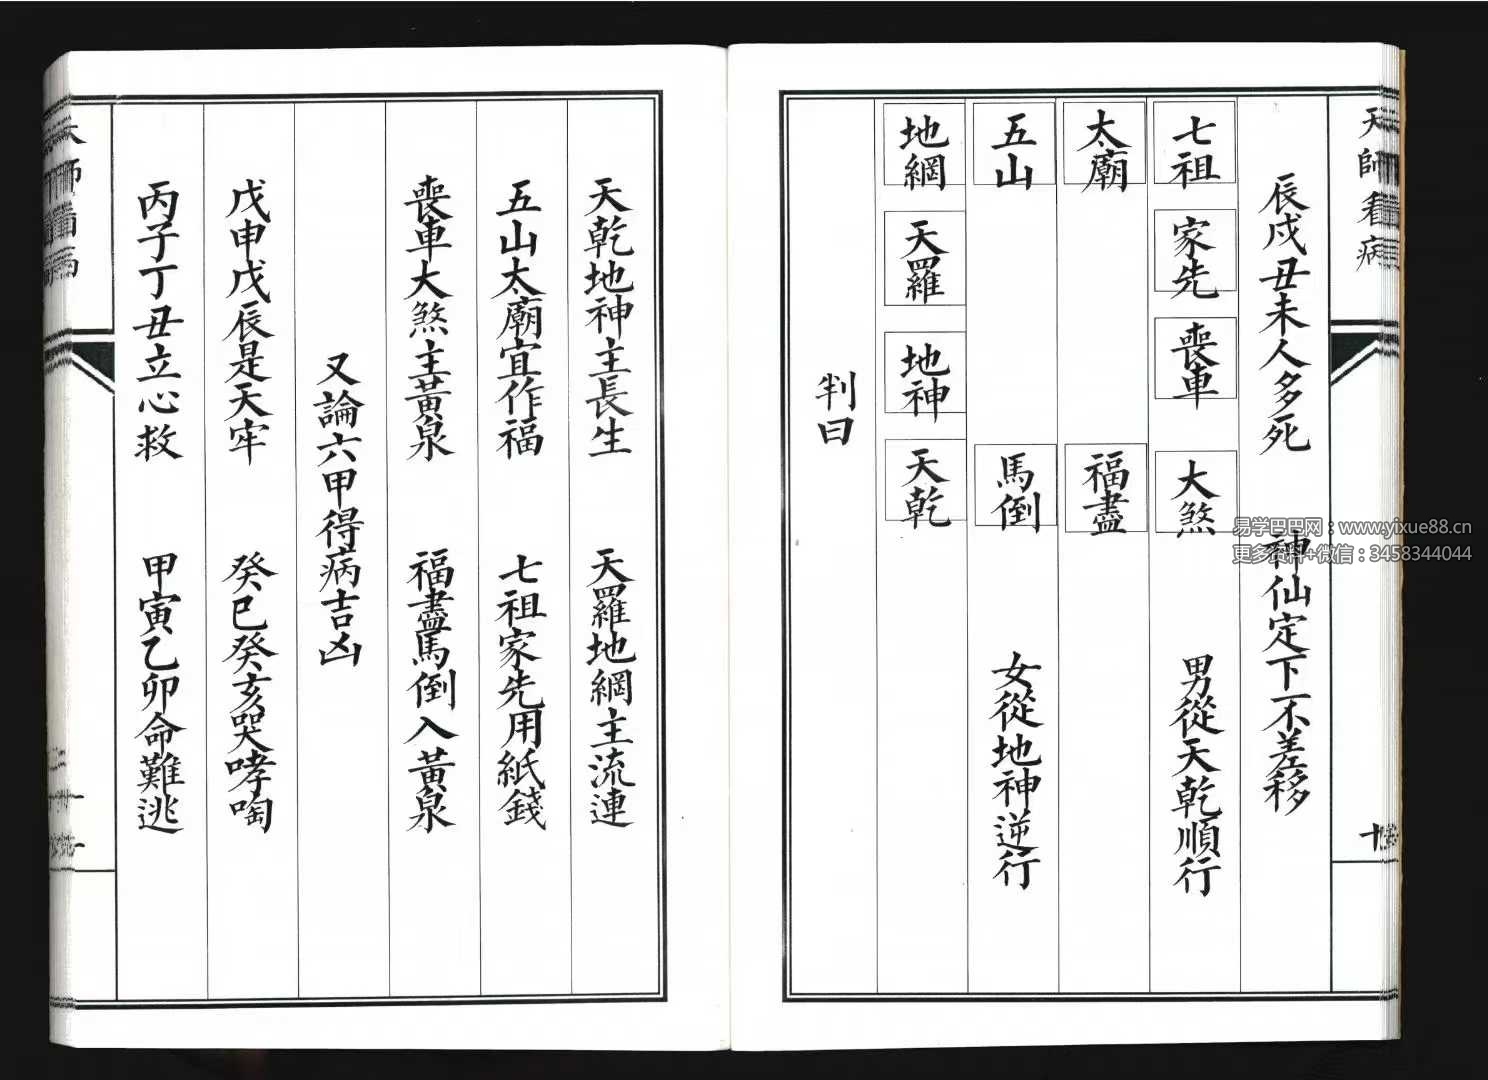 天師看病
辰戌丑未人多死　神仙定下不差移
七祖　家先　喪車　大煞　男從天乾順行
太廟　福盡
五山　馬倒　女從地神逆行
地網　天羅　地神　天乾
判曰
天乾地神主長生　天羅地網主流連
五山太廟宜作福　七祖家先用紙錢
喪車大煞主黃泉　福盡馬倒入黃泉
又論六甲得病吉凶
戊申戊辰是天牢　癸巳癸亥哭哮啕
丙子丁丑立心救　甲寅乙卯命難逃
易学巴巴网：www.yixue88.cn
更多资料+微信：3458344044